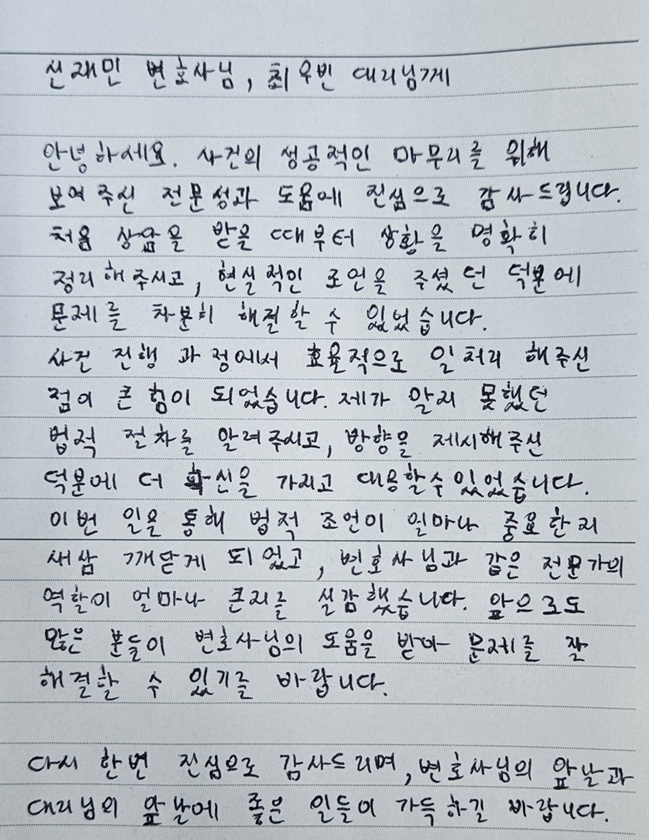 신재민 변호사님, 최우빈 대리님께
안녕하세요. 사건의 성공적인 마무리를 위해
보여주신 전문성과 도움에 진심으로 감사드립니다.
처음 상담을 받을 때부터 상황을 명확히
정리해주시고, 현실적인 조언을 주셨던 덕분에
문제를 차분히 해결할 수 있었습니다.
사건 진행 과정에서 효율적으로 일처리 해주신
점이 큰 힘이 되었습니다. 제가 알지 못했던
법적 절차를 알려주시고, 방향을 제시해주신
덕분에 더 확신을 가지고 대응할 수 있었습니다.
이번 일을 통해 법적 조언이 얼마나 중요한지
새삼 깨닫게 되었고, 변호사님과 같은 전문가의
역할이 얼마나 큰지를 실감했습니다. 앞으로도
많은 분들이 변호사님의 도움을 받아 문제를 잘
해결할 수 있기를 바랍니다.
다시 한번 진심으로 감사드리며, 변호사님의 앞날과
대리님의 앞날에 좋은 일들이 가득하길 바랍니다.